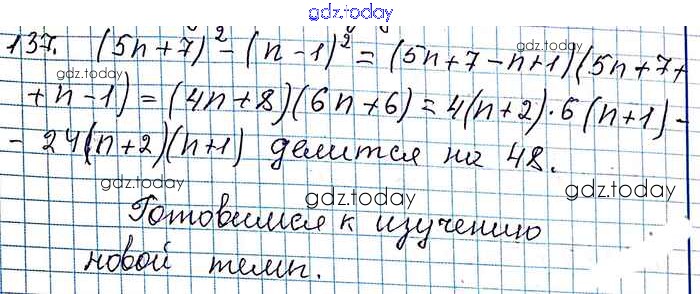 gdz.today
137. (5n+7)² - (n-1)² = (5n+7-n+1)(5n+7+
gdz.today
gdz.today
+n-1) = (4n+8)(6n+6) = 4(n+2)·6(n+1) -
gdz.today
gdz.today
- 24(n+2)(n+1) делится на 48.
gdz.today
gdz.today
gdz.today
Готовимся к изучению
новой темы.